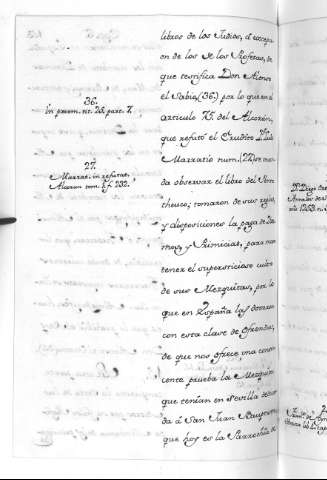 libros de los Judios, á excepci
on de los de los Profetas, de
que testifica Don Alonso
el Sabio, (36.) por lo que en el
articulo 75. del Alcorán,
que refutó el Erudito P. Luis
Marracio num. (22) se man
da observar el libro del Pen
theuco; tomaron de sus reglas,
y disposiciones la paga de Diez
mos, y Primicias, para man
tener el supersticioso culto
de sus Mezquitas, por lo
que en España las dotaron
con esta clave de ofrendas,
de que nos ofrece una concu
cente prueba la Mezquita
que tenian en Sevilla dedica
da á San Juan Bauptista
que hoy es la Parrochia de
36.
in proem. tit. 25. part. 7.
27.
Marrac. in refutat.
Alcoran tom. 1. f. 232.